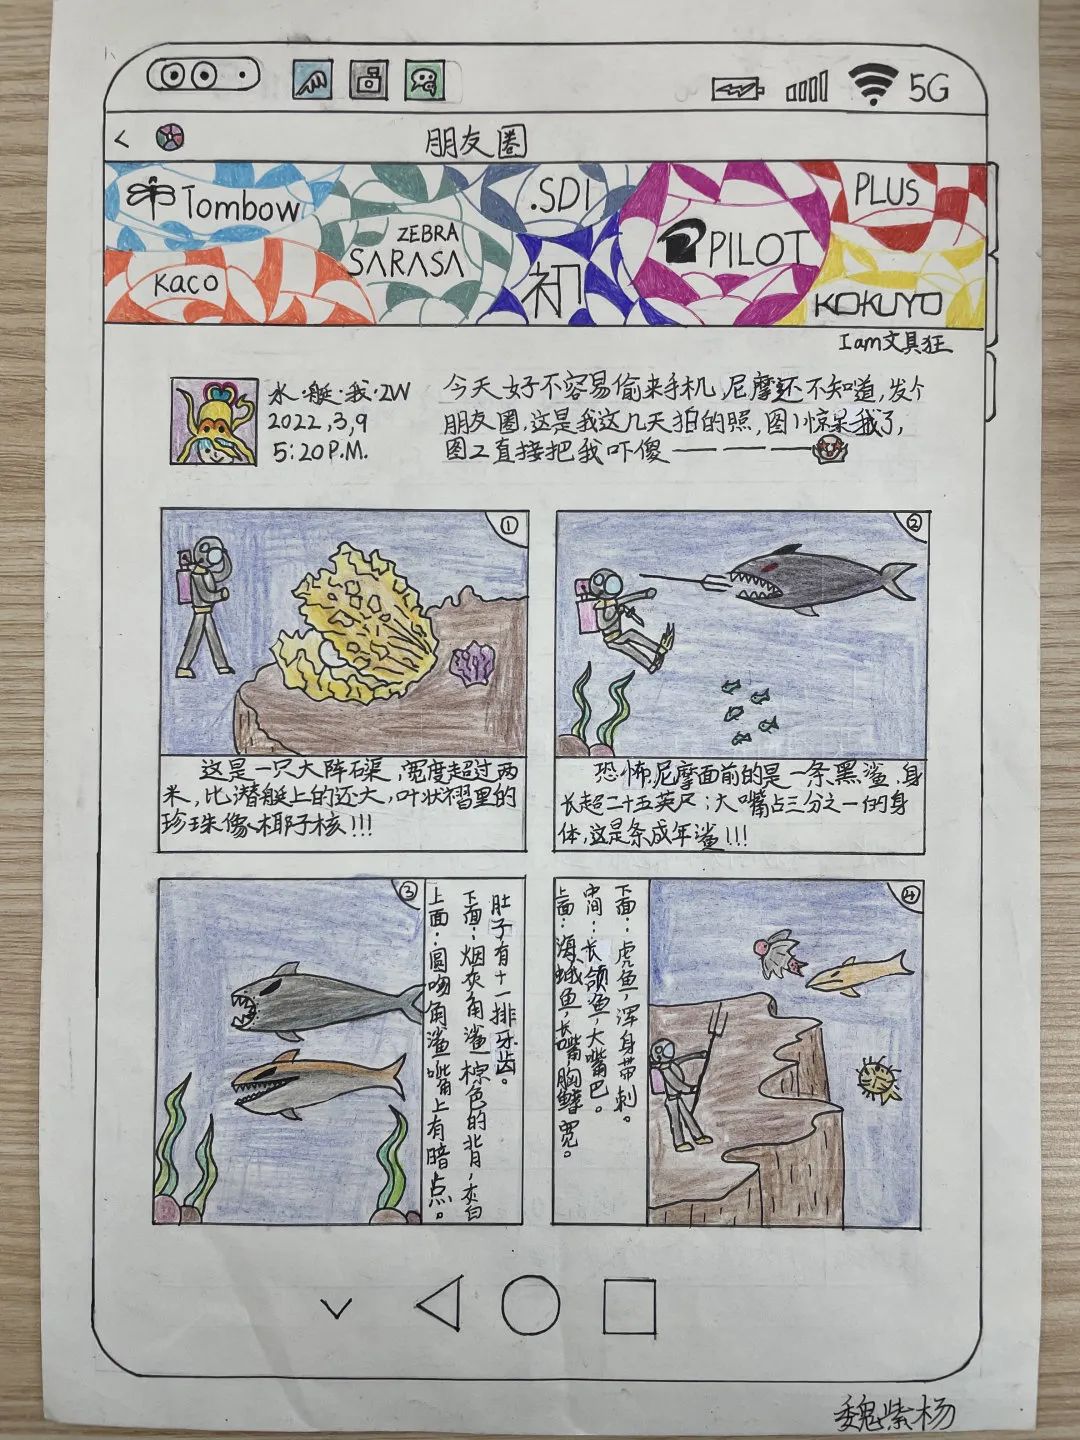 5G
朋友圈
Tombow
ZEBRA
SARASA
.SDI
PILOT
PLUS
Kaco
初
KOKUYO
I am文具狂
水·艇·我·ZW
2022,3,9
5:20P.M.
今天好不容易偷来手机,尼摩还不知道,发个
朋友圈,这是我这几天拍的照,图1惊呆我了,
图2直接把我吓傻————
①
这是一只大阵石渠,宽度超过两
米,比潜艇上的还大,叶状褶里的
珍珠像椰子核!!!
②
恐怖,尼摩面前的是一条黑鲨,身
长超二十五英尺;大嘴占三分之一的身
体,这是条成年鲨!!!
③
上面:圆吻角鲨嘴上有暗点。
下面:烟灰角鲨棕色的背,灰白
肚子有十一排牙齿。
④
上面:海蛾鱼,长嘴,胸鳍宽。
中间:长颌鱼,大嘴巴。
下面:虎鱼,浑身带刺。
魏紫杨